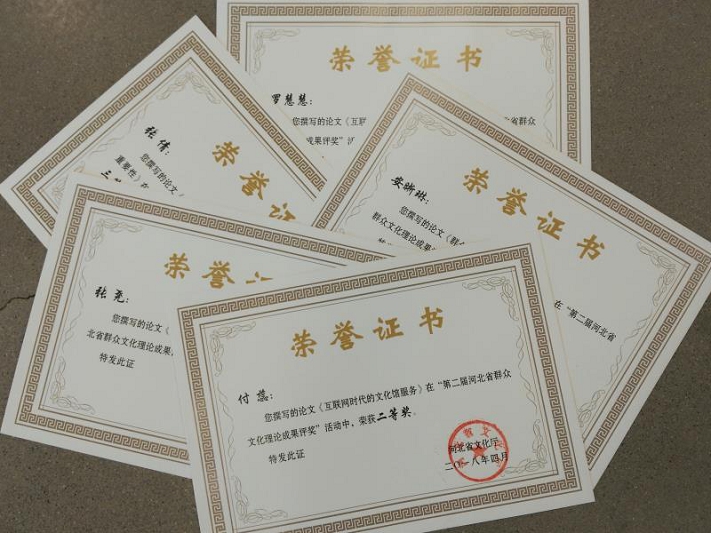 荣誉证书
罗慧慧：
您撰写的论文《互联
北省群众
成果评奖”活
张倩：
荣誉证
您撰写的论文
重要性》在
安晰琳：
荣誉证书
您撰写的论文《群
在“第二届河北省
群众文化理论成果
张尧：
荣誉
您撰写的论文《
北省群众文化理论成果
特发此证
荣誉证书
付蕊：
您撰写的论文《互联网时代的文化馆服务》在“第二届河北省群众
文化理论成果评奖”活动中，荣获二等奖。
特发此证
河北省文化厅
二〇一八年四月